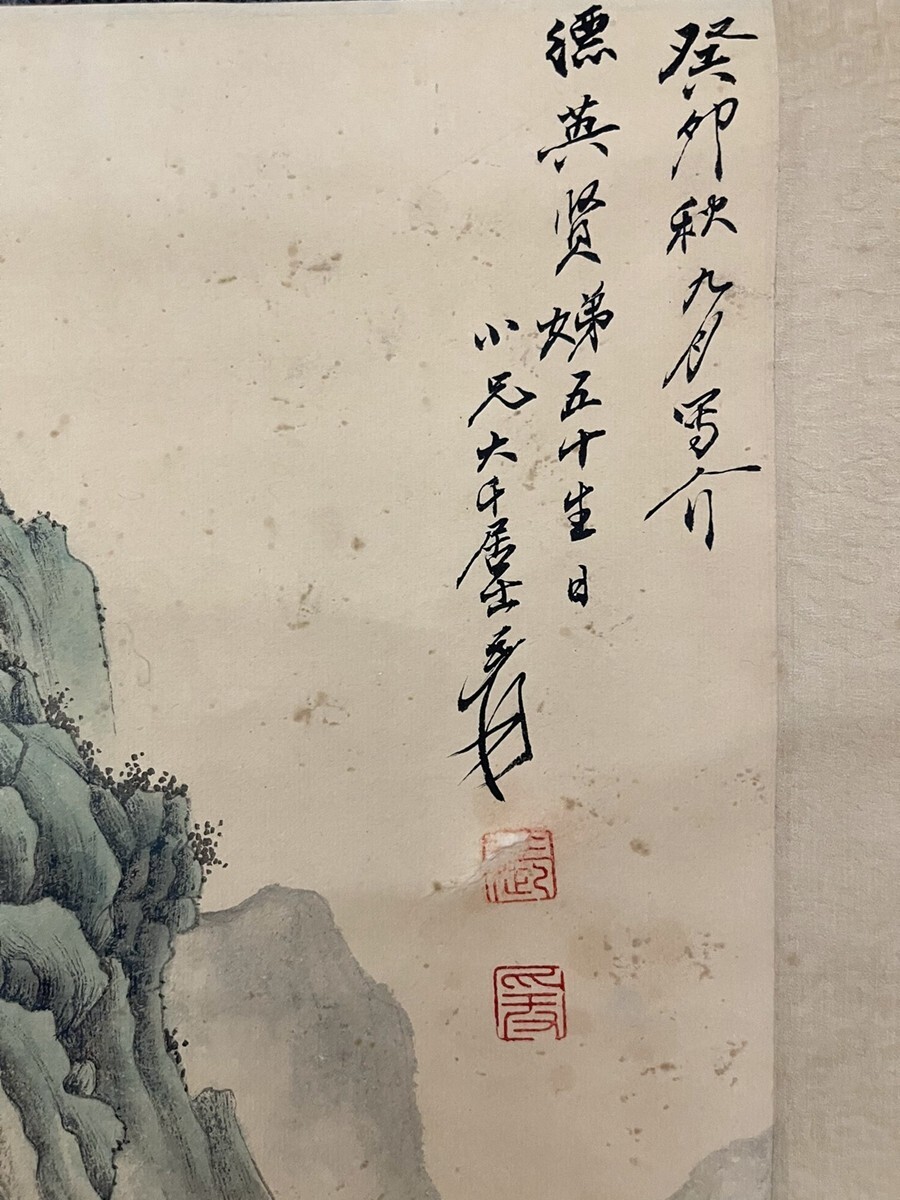 癸卯秋九月写介
德英贤娣五十生日
小兄大千居士爰